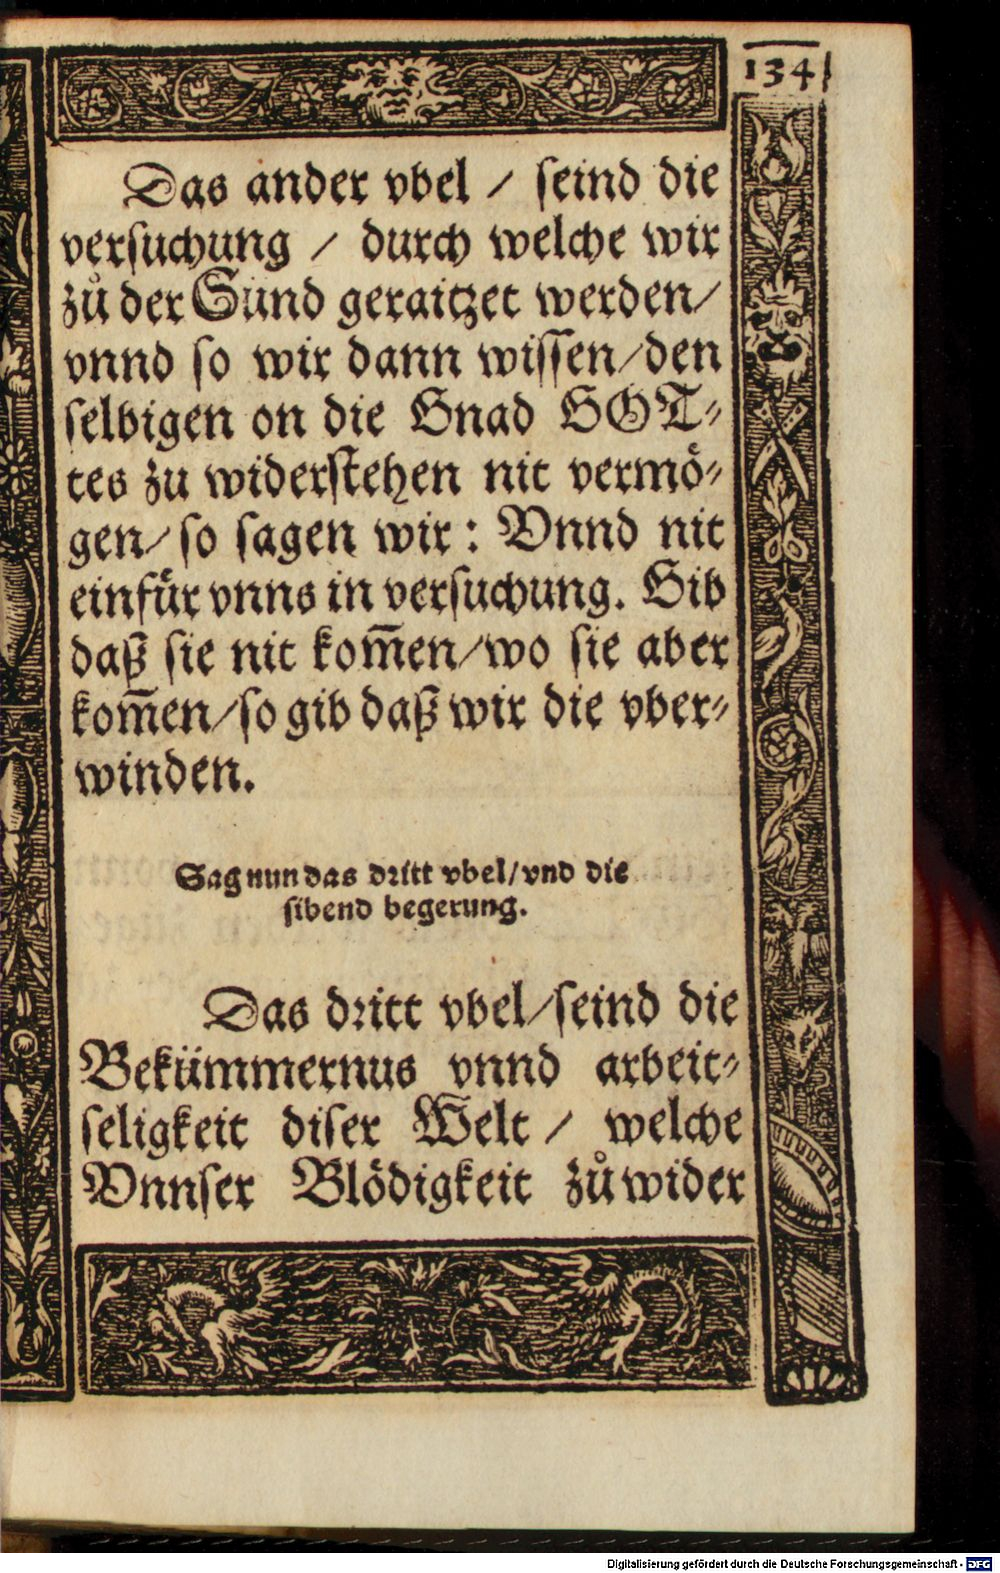 134
Das ander vbel / seind die
versuchung / durch welche wir
zuͦ der Sünd geraitzet werden/
vnnd so wir dann wissen/den
selbigen on die Gnad GOT-
tes zu widerstehen nit vermö-
gen/so sagen wir: Vnnd nit
einfür vnns in versuchung. Gib
daß sie nit kom̃en/wo sie aber
kom̃en/so gib daß wir die vber-
winden.
Sag nun das dritt vbel/vnd die
sibend begerung.
Das dritt vbel/seind die
Bekümmernus vnnd arbeit-
seligkeit diser Welt / welche
Vnnser Blödigkeit zuͦ wider
Digitalisierung gefördert durch die Deutsche Forschungsgemeinschaft - DFG